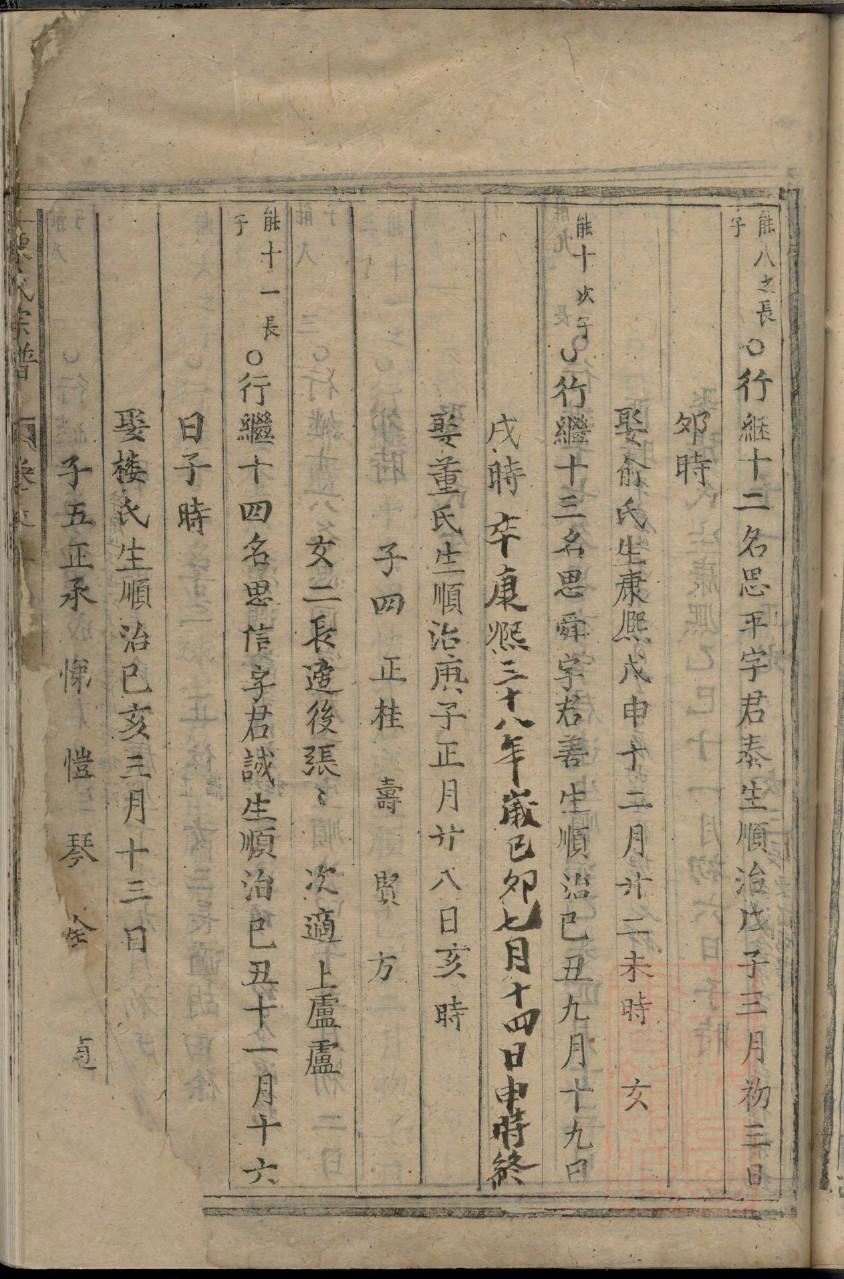 能八之長子○行継十二名思平字君泰生順治戊子三月初三日
夘時
娶俞氏生康熈戊申十二月廿二未時　女
能十次子○行繼十三名思舜字君善生順治己丑九月十九日
戌時卒康熈三十八年嵗己卯七月十四日申時終
娶董氏生順治庚子正月廿八日亥時
子四　正桂　壽　賢　方
女二長適後張〻　次適上盧盧
能十一長子○行繼十四名思信字君誠生順治己丑十一月十六
日子時
娶楼氏生順治己亥三月十三日
子五正承　悌　愷　琴　
氏宗譜